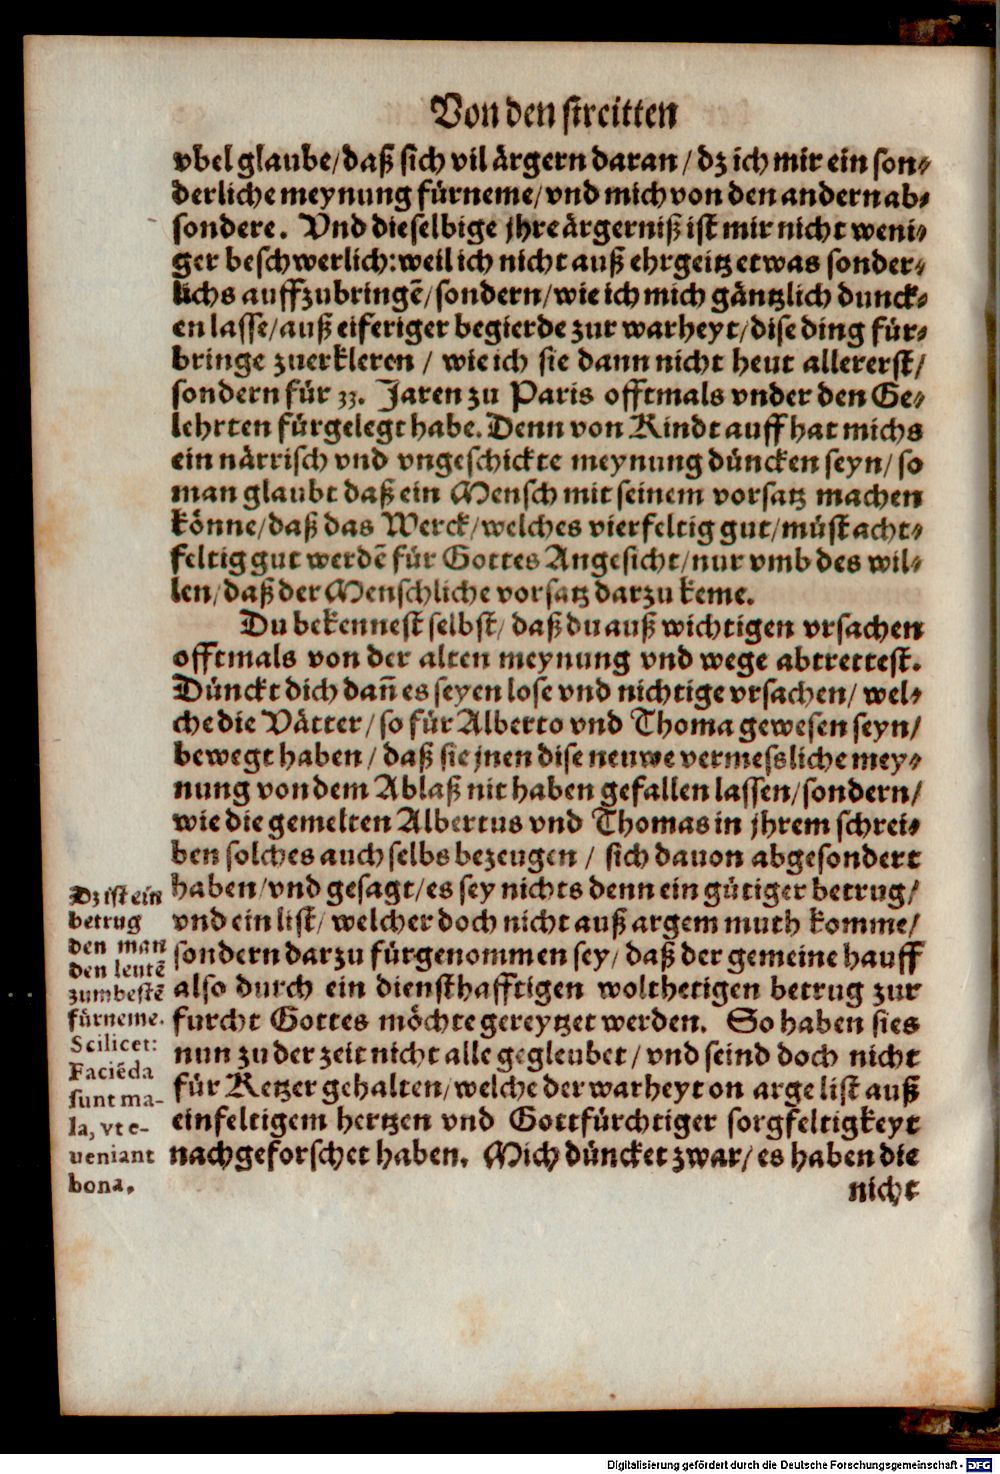 Von den streitten
vbel glaube/ daß sich vil ärgern daran/ dz ich mir ein son⸗
derliche meynung fürneme/ vnd mich von den andern ab⸗
sondere. Vnd dieselbige jhre ärgerniß ist mir nicht weni⸗
ger beschwerlich: weil ich nicht auß ehrgeitz etwas sonder⸗
lichs auffzubringē/ sondern/ wie ich mich gäntzlich dunck⸗
en lasse/ auß eiferiger begierde zur warheyt/ dise ding für⸗
bringe zuerkleren / wie ich sie dann nicht heut allererst/
sondern für 33. Jaren zu Paris offtmals vnder den Ge⸗
lehrten fürgelegt habe. Denn von Kindt auff hat michs
ein närrisch vnd vngeschickte meynung düncken seyn/ so
man glaubt daß ein Mensch mit seinem vorsatz machen
könne/ daß das Werck/ welches vierfeltig gut/ müst acht⸗
feltig gut werdē für Gottes Angesicht/ nur vmb des wil⸗
len/ daß der Menschliche vorsatz darzu keme.
Du bekennest selbst/ daß du auß wichtigen vrsachen
offtmals von der alten meynung vnd wege abtrettest.
Dünckt dich dañ es seyen lose vnd nichtige vrsachen/ wel⸗
che die Vätter/ so für Alberto vnd Thoma gewesen seyn/
bewegt haben/ daß sie jnen dise neuwe vermessliche mey⸗
nung von dem Ablaß nit haben gefallen lassen/ sondern/
wie die gemelten Albertus vnd Thomas in jhrem schrei⸗
ben solches auch selbs bezeugen / sich dauon abgesondert
haben/ vnd gesagt/ es sey nichts denn ein gütiger betrug/
vnd ein list/ welcher doch nicht auß argem muth komme/
sondern darzu fürgenommen sey/ daß der gemeine hauff
also durch ein diensthafftigen wolthetigen betrug zur
furcht Gottes möchte gereytzet werden. So haben sies
nun zu der zeit nicht alle gegleubet/ vnd seind doch nicht
für Ketzer gehalten/ welche der warheyt on arge list auß
einfeltigem hertzen vnd Gottfürchtiger sorgfeltigkeyt
nachgeforschet haben. Mich düncket zwar/ es haben die
nicht
Dz ist ein
betrug
den man
den leutē
zum bestē
fürneme.
Scilicet:
Faciēda
sunt ma-
la, vt e-
ueniant
bona.
Digitalisierung gefördert durch die Deutsche Forschungsgemeinschaft - DFG